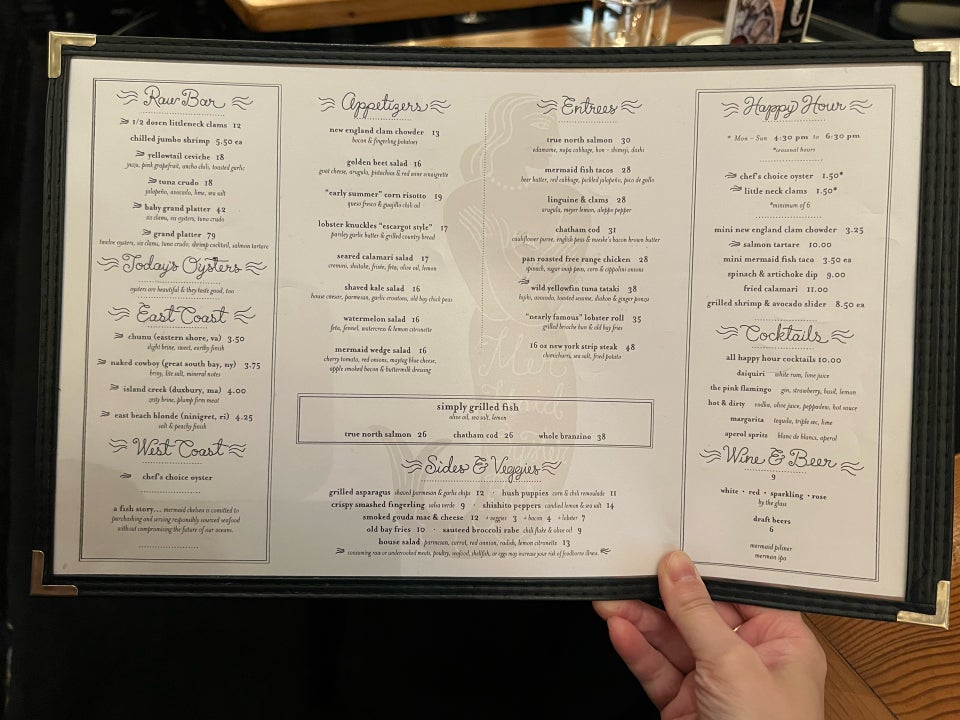 Raw Bar
1/2 dozen littleneck clams 12
chilled jumbo shrimp 5.50 ea
yellowtail ceviche 18
yuzu, pink grapefruit, ancho chili, toasted garlic
tuna crudo 18
jalapeño, avocado, lime, sea salt
baby grand platter 42
six clams, six oysters, tuna crudo
grand platter 79
twelve oysters, six clams, tuna crudo, shrimp cocktail, salmon tartare
Today's Oysters
oysters are beautiful & they taste good, too
East Coast
chunu (eastern shore, va) 3.50
slight brine, sweet, earthy finish
naked cowboy (great south bay, ny) 3.75
briny, lite salt, mineral notes
island creek (duxbury, ma) 4.00
zesty brine, plump firm meat
east beach blonde (ninigret, ri) 4.25
salt & peachy finish
West Coast
chef's choice oyster
a fish story... mermaid chelsea is comitted to
purchashing and serving responsibly sourced seafood
without compromising the future of our oceans.
Appetizers
new england clam chowder 13
bacon & fingerling potatoes
golden beet salad 16
goat cheese, arugula, pistachios & red wine vinaigrette
"early summer" corn risotto 19
queso fresco & guajillo chili oil
lobster knuckles "escargot style" 17
parsley garlic butter & grilled country bread
seared calamari salad 17
cremini, shiitake, frisée, feta, olive oil, lemon
shaved kale salad 16
house caesar, parmesan, garlic croutons, old bay chick peas
watermelon salad 16
feta, fennel, watercress & lemon citronette
mermaid wedge salad 16
cherry tomato, red onions, maytag blue cheese,
apple smoked bacon & buttermilk dressing
Entrees
true north salmon 30
edamame, napa cabbage, hon - shimeji, dashi
mermaid fish tacos 28
beer batter, red cabbage, pickled jalapeño, pico de gallo
linguine & clams 28
arugula, meyer lemon, aleppo pepper
chatham cod 31
cauliflower puree, english peas & meeke's bacon brown butter
pan roasted free range chicken 28
spinach, sugar snap peas, corn & cippolini onions
wild yellowfin tuna tataki 38
hijiki, avocado, toasted sesame, daikon & ginger ponzu
"nearly famous" lobster roll 35
grilled brioche bun & old bay fries
16 oz new york strip steak 48
chimichurri, sea salt, fried potato
simply grilled fish
olive oil, sea salt, lemon
true north salmon 26 chatham cod 26 whole branzino 38
Sides & Veggies
grilled asparagus shaved parmesan & garlic chips 12 · hush puppies corn & chili remoulade 11
crispy smashed fingerling salsa verde 9 · shishito peppers candied lemon & sea salt 14
smoked gouda mac & cheese 12 + veggies 3 + bacon 4 + lobster 7
old bay fries 10 · sauteed broccoli rabe chili flake & olive oil 9
house salad parmesan, carrot, red onnion, radish, lemon citronette 13
consuming raw or undercooked meats, poultry, seafood, shellfish, or eggs may increase your risk of foodborne illness.
Happy Hour
* Mon - Sun 4:30 pm to 6:30 pm
*seasonal hours
chef's choice oyster 1.50*
little neck clams 1.50*
*minimum of 6
mini new england clam chowder 3.25
salmon tartare 10.00
mini mermaid fish taco 3.50 ea
spinach & artichoke dip 9.00
fried calamari 11.00
grilled shrimp & avocado slider 8.50 ea
Cocktails
all happy hour cocktails 10.00
daiquiri white rum, lime juice
the pink flamingo gin, strawberry, basil, lemon
hot & dirty vodka, olive juice, peppadew, hot sauce
margarita tequila, triple sec, lime
aperol spritz blanc de blancs, aperol
Wine & Beer
9
white · red · sparkling · rose
by the glass
draft beers
6
mermaid pilsner
merman ipa